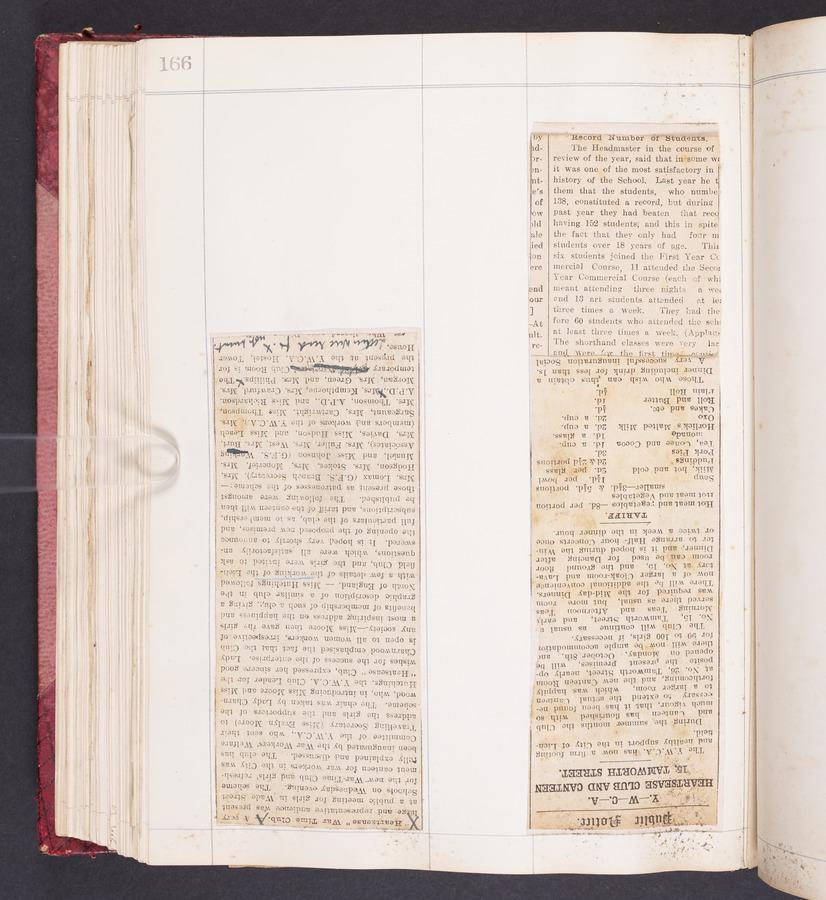 166
"Heartsease" War Time Club. A very
large and representative audience was present
at a public meeting for girls in Wade Street
Schools on Wednesday evening. The scheme
for the new War-Time Club and girls' refresh-
ment canteen for war workers in the City was
fully explained and discussed. The club has
been inaugurated by the War Workers' Welfare
Committee of the Y.W.C.A., who sent their
Travelling Secretary (Miss Evelyn Moore) to
address the girls and the supporters of the
scheme. The chair was taken by Lady Charn-
wood, who, in introducing Miss Moore and Miss
Hutchings, the Y.W.C.A. Club Leader for the
"Heartsease" Club, expressed her sincere good
wishes for the success of the enterprise. Lady
Charnwood emphasised the fact that the Club
is open to all women workers, irrespective of
any society.—Miss Moore then gave the girls
a most inspiring address on the happiness and
benefits of membership of such a club, giving a
graphic description of a similar club in the
North of England. — Miss Hutchings followed
with a few details of the working of the Lich-
field Club, and the girls were invited to ask
questions, which were all satisfactorily an-
swered. It is hoped very shortly to announce
the opening of the proposed new premises, and
full particulars of the club, as to membership,
subscriptions, and tariff of the canteen will then
be published. The following were amongst
those present as patronesses of the scheme:—
Mrs. Lomax (G.F.S. Branch Secretary), Mrs.
Hodgson, Mrs. Stokes, Mrs. Moncrief, Mrs.
Mansel, and Miss Johnson (G.F.S. Working
Associates), Mrs. Fuller, Mrs. West, Mrs. Burt,
Mrs. Davies, Miss Hudson, and Miss Leach
(members and workers of the Y.W.C.A.), Mrs.
Sargeaunt, Mrs. Cartwright, Miss Thompson,
Mrs. Thomson, A.P.D., and Miss Richardson,
A.P.D., Mrs. Kempthorne, Mrs. Crawfurd, Mrs.
Morgan, Mrs. Green, and Mrs. Phillips. The
temporary Club Room is for
the present at the Y.W.C.A. Hostel, Tower
House.
Record Number of Students.
The Headmaster in the course of
review of the year, said that in some
it was one of the most satisfactory in
history of the School. Last year he
them that the students, who
138, constituted a record, but during
past year they had beaten that
having 152 students; and this in spite
the fact that they only had four
students over 18 years of age.
six students joined the First Year
mercial Course, 11 attended the
Year Commercial Course (each of
meant attending three nights a
and 13 art students attended at
three times a week. They had
fore 60 students who attended the
at least three times a week.
The shorthand classes were very
and were for the first time
Public Notice.
Y.—W.—C.—A.
HEARTSEASE CLUB AND CANTEEN
15, TAMWORTH STREET.
The Y.W.C.A. has now a firm footing
and healthy support in the City of Lich-
field.
During the summer months the Club
and Canteen has flourished with so
much vigour, that it has been found ne-
cessary to extend the actual Canteen
to a larger room, which was happily
forthcoming, and the new Canteen Room
at No. 29, Tamworth Street, nearly op-
posite the present premises, will be
opened on Monday, October 8th, and
there will now be ample accommodation
for 90 to 100 girls, if necessary.
The Club will continue as usual at
No. 15, Tamworth Street, and early
Morning Teas and Afternoon Teas
served there as usual, but more room
was required for the Mid-day Dinners.
There will be the additional convenience
now of a larger Cloak-room and Lava-
tory at No. 15, and the ground floor
room can be used for Dancing after
Dinner, and it is hoped during the Win-
ter to arrange Half-hour Concerts once
or twice a week in the dinner hour.
TARIFF.
Hot meat and vegetables —8d. per portion
Hot meat and Vegetables
smaller—3½d. & 4½d. portions
Soup 1½d. per bowl
Milk, hot and cold 2d. per glass
Puddings 2d & 2½d portions
Pork Pies 3d.
Tea, Coffee and Cocoa 1d. a cup.
1d. a glass.
Horlick's Malted Milk 2d. a cup.
Oxo 2d. a cup.
Cakes and etc. ½d.
Roll and Butter 1d.
Plain Roll ½d.
Those who wish can thus obtain a
Dinner including drink for less than 1s.
A very successful inauguration Social